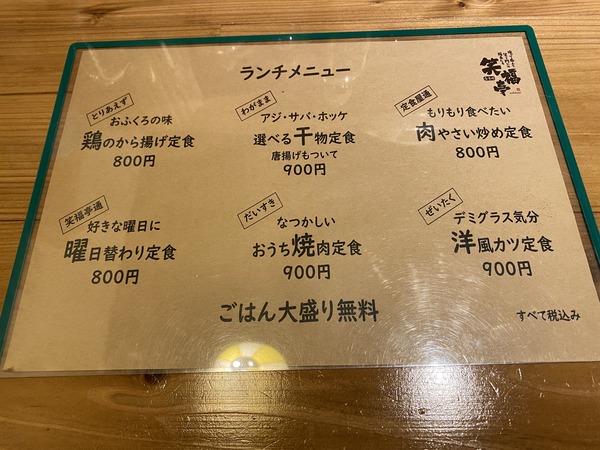 ランチメニュー
笑福亭
とりあえず
おふくろの味
鶏のから揚げ定食
800円
わがまま
アジ・サバ・ホッケ
選べる干物定食
唐揚げもついて
900円
定食屋通
もりもり食べたい
肉やさい炒め定食
800円
笑福亭通
好きな曜日に
曜日替わり定食
800円
だいすき
なつかしい
おうち焼肉定食
900円
ぜいたく
デミグラス気分
洋風カツ定食
900円
ごはん大盛り無料
すべて税込み